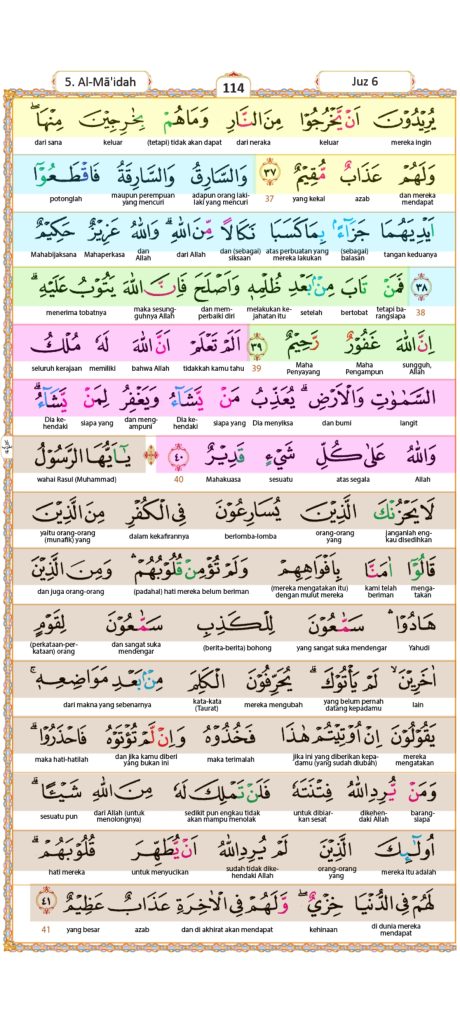 5. Al-Mā'idah
114
Juz 6
يُرِيْدُوْنَ اَنْ يَّخْرُجُوْا مِنَ النَّارِ وَمَا هُمْ بِخٰرِجِيْنَ مِنْهَا ۖ
mereka ingin keluar dari neraka (tetapi) tidak akan dapat keluar dari sana
وَلَهُمْ عَذَابٌ مُّقِيْمٌ ٣٧ وَالسَّارِقُ وَالسَّارِقَةُ فَاقْطَعُوْٓا
dan mereka mendapat azab yang kekal 37 adapun orang laki-laki yang mencuri maupun perempuan yang mencuri potonglah
اَيْدِيَهُمَا جَزَاۤءً ۢبِمَا كَسَبَا نَكَالًا مِّنَ اللّٰهِ ۗ وَاللّٰهُ عَزِيْزٌ حَكِيْمٌ
tangan keduanya (sebagai) balasan atas perbuatan yang mereka lakukan dan (sebagai) siksaan dari Allah dan Allah Mahaperkasa Mahabijaksana
٣٨ فَمَنْ تَابَ مِنْۢ بَعْدِ ظُلْمِهٖ وَاَصْلَحَ فَاِنَّ اللّٰهَ يَتُوْبُ عَلَيْهِ ۗ
38 tetapi barangsiapa bertobat setelah melakukan kejahatan itu dan memperbaiki diri maka sesungguhnya Allah menerima tobatnya
اِنَّ اللّٰهَ غَفُوْرٌ رَّحِيْمٌ ٣٩ اَلَمْ تَعْلَمْ اَنَّ اللّٰهَ لَهٗ مُلْكُ
sungguh, Allah Maha Pengampun Maha Penyayang 39 tidakkah kamu tahu bahwa Allah memiliki seluruh kerajaan
السَّمٰوٰتِ وَالْاَرْضِ ۗ يُعَذِّبُ مَنْ يَّشَاۤءُ وَيَغْفِرُ لِمَنْ يَّشَاۤءُ ۗ
langit dan bumi Dia menyiksa siapa yang Dia kehendaki dan mengampuni siapa yang Dia kehendaki
وَاللّٰهُ عَلٰى كُلِّ شَيْءٍ قَدِيْرٌ ٤٠ يٰٓاَيُّهَا الرَّسُوْلُ
Allah atas segala sesuatu Mahakuasa 40 wahai Rasul (Muhammad)
لَا يَحْزُنْكَ الَّذِيْنَ يُسَارِعُوْنَ فِى الْكُفْرِ مِنَ الَّذِيْنَ
janganlah engkau disedihkan orang-orang yang berlomba-lomba dalam kekafirannya yaitu orang-orang (munafik) yang
قَالُوْٓا اٰمَنَّا بِاَفْوَاهِهِمْ وَلَمْ تُؤْمِنْ قُلُوْبُهُمْ ۛ وَمِنَ الَّذِيْنَ
mengatakan kami telah beriman (mereka mengatakan itu) dengan mulut mereka (padahal) hati mereka belum beriman dan juga orang-orang
هَادُوْا ۛ سَمّٰعُوْنَ لِلْكَذِبِ سَمّٰعُوْنَ لِقَوْمٍ
Yahudi yang sangat suka mendengar (berita-berita) bohong dan sangat suka mendengar (perkataan-perkataan) orang
اٰخَرِيْنَ ۙ لَمْ يَأْتُوْكَ ۗ يُحَرِّفُوْنَ الْكَلِمَ مِنْۢ بَعْدِ مَوَاضِعِهٖ ۚ
lain yang belum pernah datang kepadamu mereka mengubah kata-kata (Taurat) dari makna yang sebenarnya
يَقُوْلُوْنَ اِنْ اُوْتِيْتُمْ هٰذَا فَخُذُوْهُ وَاِنْ لَّمْ تُؤْتَوْهُ فَاحْذَرُوْا ۗ
mereka mengatakan jika ini yang diberikan kepadamu (yang sudah diubah) maka terimalah dan jika kamu diberi yang bukan ini maka hati-hatilah
وَمَنْ يُّرِدِ اللّٰهُ فِتْنَتَهٗ فَلَنْ تَمْلِكَ لَهٗ مِنَ اللّٰهِ شَيْـًٔا ۗ
barangsiapa dikehendaki Allah untuk dibiarkan sesat sedikit pun engkau tidak akan mampu menolak dari Allah (untuk menolongnya) sesuatu pun
اُولٰۤىِٕكَ الَّذِيْنَ لَمْ يُرِدِ اللّٰهُ اَنْ يُّطَهِّرَ قُلُوْبَهُمْ ۗ
mereka itu adalah orang-orang yang sudah tidak dikehendaki Allah untuk menyucikan hati mereka
لَهُمْ فِى الدُّنْيَا خِزْيٌ ۖ وَّلَهُمْ فِى الْاٰخِرَةِ عَذَابٌ عَظِيْمٌ ٤١
di dunia mereka mendapat kehinaan dan di akhirat akan mendapat azab yang besar 41